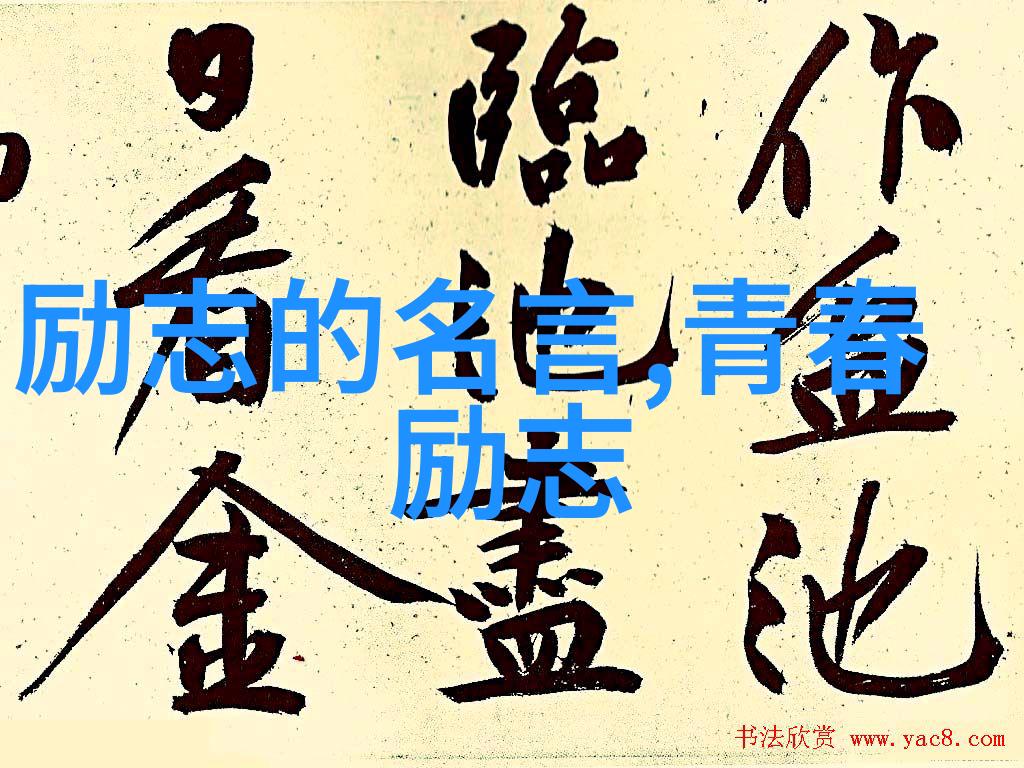 励志的名言,青春
励志
作盆池
臨池盡
日看金
书法欣赏 www.yac8.com